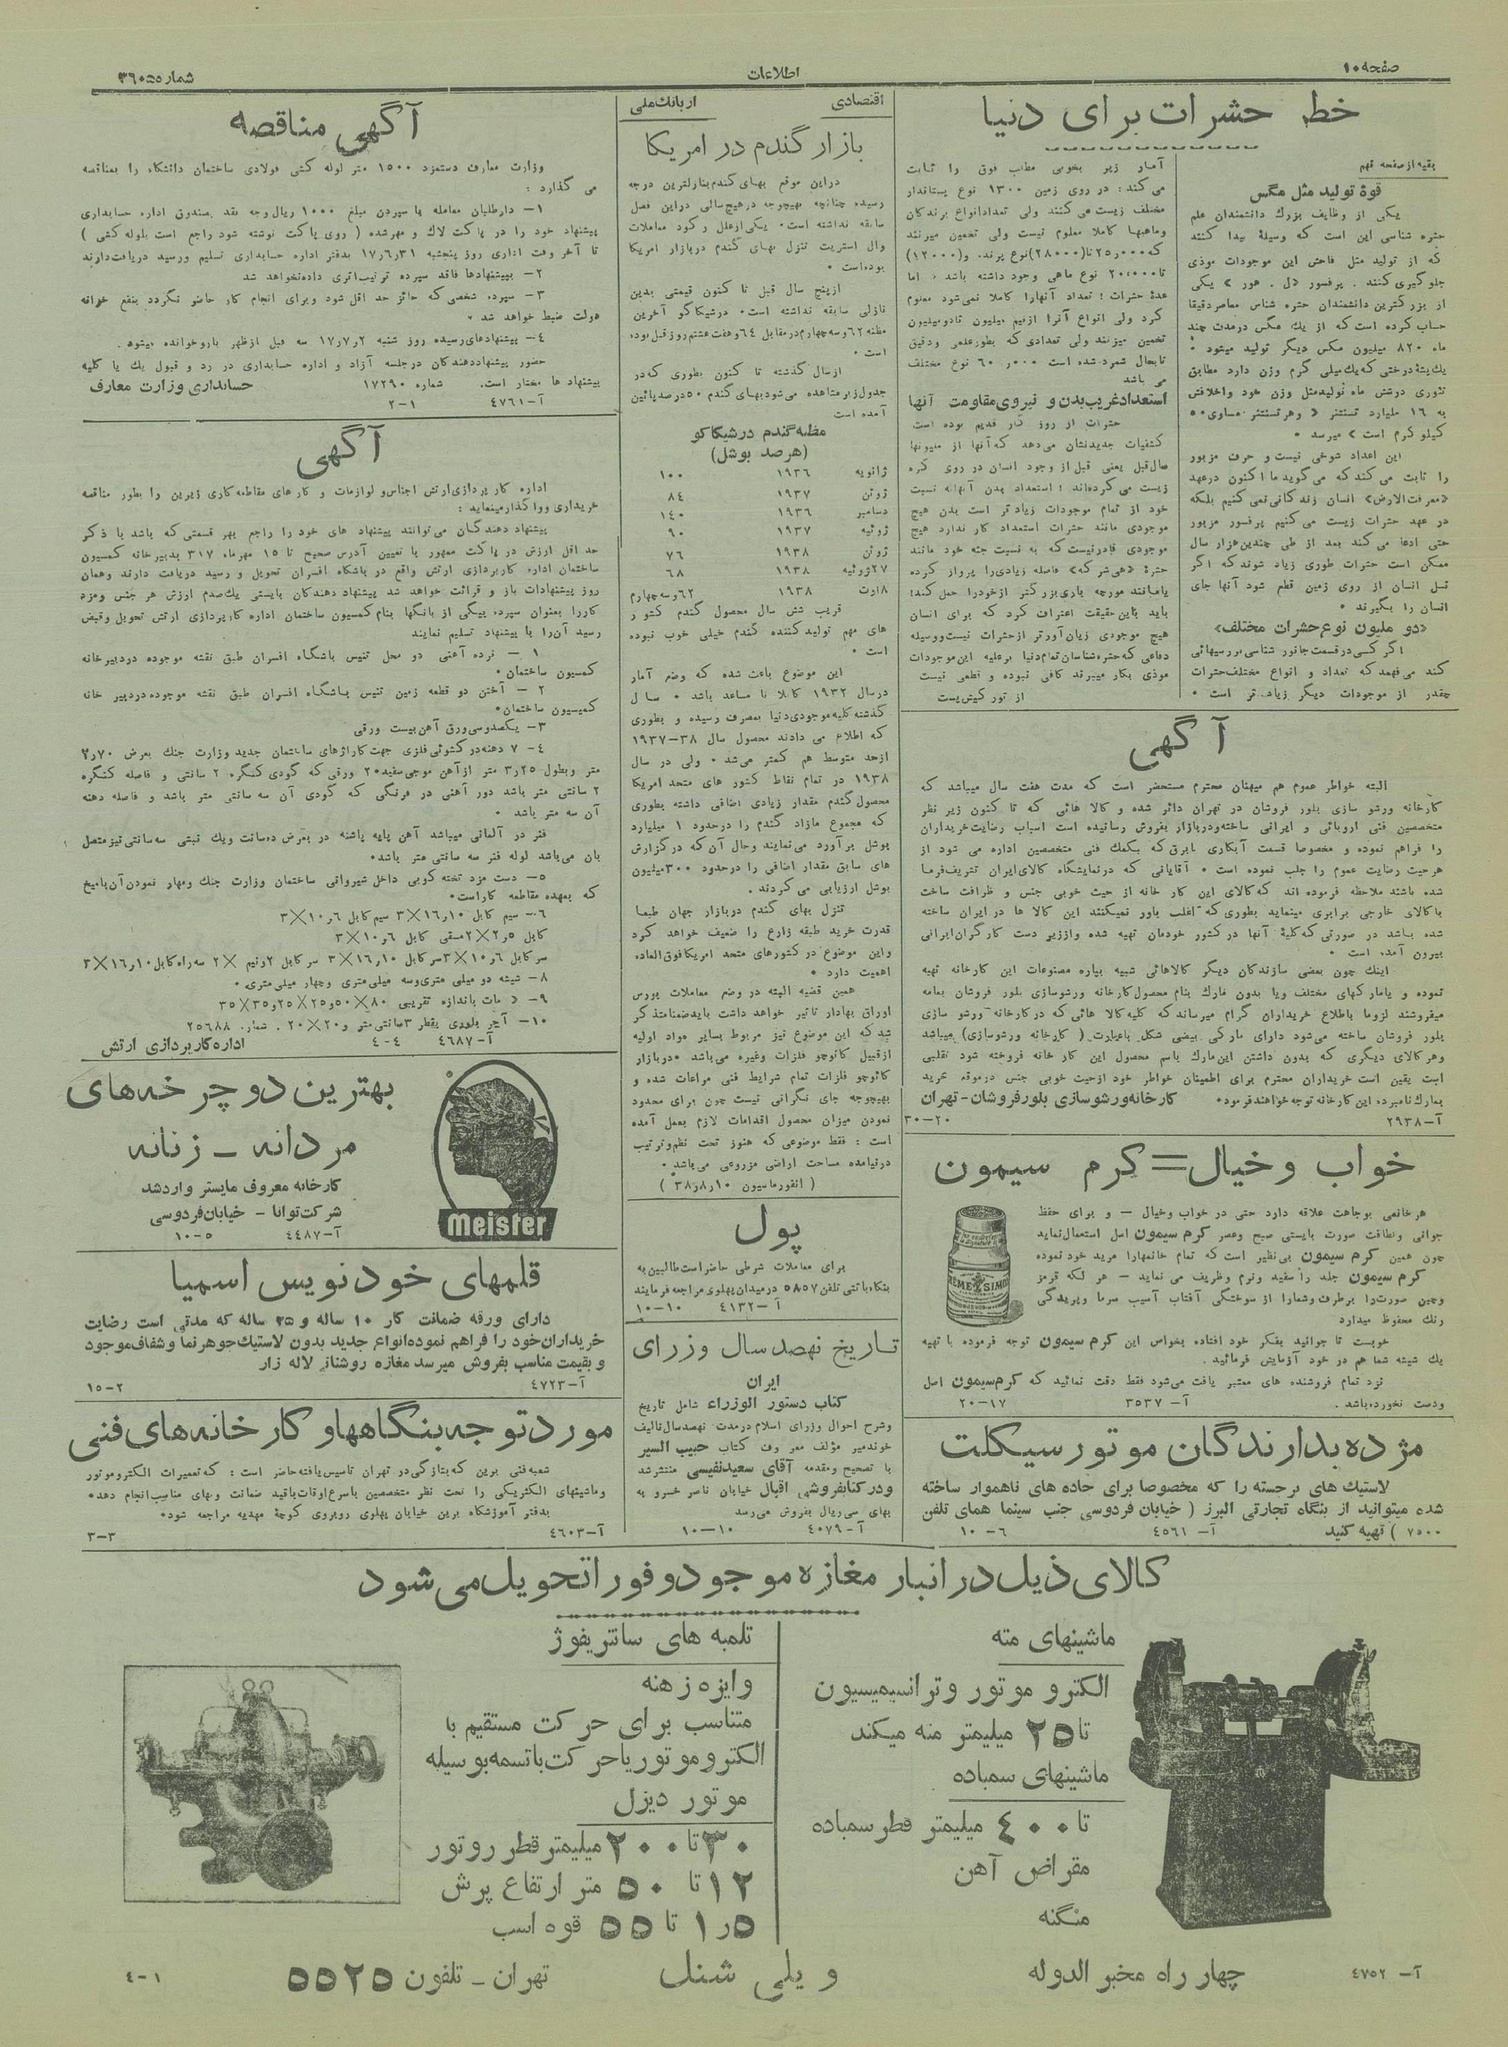 صفحه ۱۰
اطلاعات
شماره ۳۶۰۵۵
خطر حشرات برای دنیا
بقیه از صفحه نهم
قوهٔ تولید مثل مگس
یکی از وظایف بزرگ دانشمندان علم
حشره شناسی این است که وسیلهٔ پیدا کنند
که از تولید مثل فاحش این موجودات موذی
جلوگیری کنند. پرفسور «ل. هور» یکی
از بزرگترین دانشمندان حشره شناس معاصر دقیقا
حساب کرده است که از یك مگس درمدت چند
ماه ۸۲۰ میلیون مگس دیگر تولید میشود.
کیلو گرم است» میرسد.
این اعداد شوخی نیست و حرف مزبور
را ثابت می‌کند که می‌گوید ما اکنون درعهد
«معرفت‌الارض» انسان زندگانی نمی کنیم بلکه
در عهد حشرات زیست می‌کنیم پرفسور مزبور
حتی ادعا می کند بعد از طی چندین هزار سال
ممکن است حشرات طوری زیاد شوند که اگر
نسل انسان از روی زمین قطع شود آنها جای
انسان را بگیرند.
«دو ملیون نوع حشرات مختلف»
اگر کسی در قسمت جانور شناسی بررسیهائی
کند می‌فهمد که تعداد و انواع مختلف حشرات
چقدر از موجودات دیگر زیادتر است.
آمار زیر بخوبی مطلب فوق را ثابت
می کند: در روی زمین ۱۳۰۰ نوع پستاندار
مختلف زیست می کنند ولی تعداد انواع پرندگان
و ماهیها کاملا معلوم نیست ولی تخمین میزنند
که ۲۵ر۰۰۰ تا (۲۸۰۰۰) نوع پرنده و (۱۲۰۰۰)
تا ۲۰،۰۰۰ نوع ماهی وجود داشته باشد، اما
عدهٔ حشرات! تعداد آنها را کاملا نمی‌شود معلوم
کرد ولی انواع آنرا از نیم میلیون تا دو میلیون
تخمین میزنند ولی تعدادی که بطور علمی و دقیق
تابحال شمرده شده است ۶۰ر۰۰۰ نوع مختلف
می باشد
استعداد غریب بدن و نیروی مقاومت آنها
حشرات از روز گار قدیم بوده است.
کشفیات جدید نشان می‌دهد که آنها از ملیونها
سال قبل یعنی قبل از وجود انسان در روی کره
زیست می کرده‌اند! استعداد بدن آنها به نسبت
خود از تمام موجودات زیاد تر است بدن هیچ
موجودی مانند حشرات استعداد کار ندارد هیچ
موجودی قادر نیست که به نسبت جثه خود مانند
باید باین حقیقت اعتراف کرد که برای انسان
هیچ موجودی زیان‌آورتر از حشرات نیست و وسیله
دفاعی که حشره‌شناسان تمام دنیا برعلیه این موجودات
موذی بکار میبرند کافی نبوده و قطعی نیست
از تور کیش‌پست
آگهی
البته خواطر عموم هم میهنان محترم مستحضر است که مدت هفت سال میباشد که
کارخانه ورشو سازی بلور فروشان در تهران دائر شده و کالا هائی که تا کنون زیر نظر
متخصصین فنی اروپائی و ایرانی ساخته و در بازار بفروش رسانیده است اسباب رضایت خریداران
را فراهم نموده و مخصوصا قسمت آبکاری با برق که بکمك فنی متخصصین اداره می شود از
هرحیث رضایت عموم را جلب نموده است. آقایانی که در نمایشگاه کالای ایران تشریف‌فرما
شده باشند ملاحظه فرموده اند که کالای این کار خانه از حیث خوبی جنس و ظرافت ساخت
با کالای خارجی برابری مینماید بطوری که اغلب باور نمیکنند این کالا ها در ایران ساخته
شده باشد در صورتی که کلیهٔ آنها در کشور خودمان تهیه شده و از زیر دست کارگران ایرانی
بیرون آمده است.
اینك چون بعضی سازندگان دیگر کالاهائی شبیه بپاره مصنوعات این کارخانه تهیه
نموده و با مارکهای مختلف و یا بدون مارك بنام محصول کارخانه ورشوسازی بلور فروشان بعامه
میفروشند لزوما باطلاع خریداران گرام میرساند که کلیه کالا هائی که در کارخانه ورشو سازی
بلور فروشان ساخته می‌شود دارای مارکی بیضی شکل با عبارت (کارخانه ورشوسازی) میباشد
وهر کالای دیگری که بدون داشتن این مارك باسم محصول این کار خانه فروخته شود تقلبی
است یقین است خریداران محترم برای اطمینان خواطر خود از حیث خوبی جنس در موقع خرید
بمارك نامبرده این کارخانه توجه خواهند فرمود. کارخانه ورشوسازی بلورفروشان - تهران
آ-۲۹۳۸ ۳۰-۲۰
خواب و خیال = کرم سیمون
هر خانمی بوجاهت علاقه دارد حتی در خواب وخیال — و برای حفظ
جوانی و لطافت صورت بایستی صبح وعصر کرم سیمون اصل استعمال نماید
چون همین کرم سیمون بی‌نظیر است که تمام خانمها را مرید خود نموده
کرم سیمون جلد را سفید ونرم وظریف می نماید — هر لکه قرمز
وچین صورت را برطرف وشما را از سوختگی آفتاب آسیب سرما وپریدگی
رنك محفوظ میدارد
خوبست تا جوانید بفکر خود افتاده بخواص این کرم سیمون توجه فرموده با تهیه
یك شیشه شما هم در خود آزمایش فرمائید.
نزد تمام فروشنده های معتبر یافت می‌شود فقط دقت نمائید که کرم سیمون اصل
ودست نخورده باشد. آ- ۳۵۳۷ ۲۰-۱۷
مژده بدارندگان موتور سیکلت
لاستیك های برجسته را که مخصوصا برای جاده های ناهموار ساخته
شده میتوانید از بنگاه تجارتی البرز (خیابان فردوسی جنب سینما همای تلفن
۷۵۰۰) تهیه کنید آ- ۴۵۶۱ ۱۰-۶
اقتصادی
از بانك ملی
بازار گندم در امریکا
دراین موقع بهای گندم بنازلترین درجه
رسیده چنانچه بهیچوجه در هیچ سالی دراین فصل
سابقه نداشته است. یکی از علل رکود معاملات
وال استریت تنزل بهای گندم در بازار امریکا
بوده است.
از پنج سال قبل تا کنون قیمتی بدین
نازلی سابقه نداشته است. درشیکاگو آخرین
مظنه ۶۲ و سه چهارم در مقابل ۶۴ و هفت هشتم روز قبل بوده
است.
از سال گذشته تا کنون بطوری که در
جدول زیر مشاهده می‌شود بهای گندم ۵۰ درصد پائین
آمده است
مظنه گندم در شیکاگو
(هر صد بوشل)
ژانویه ۱۹۳۶ ۱۰۰
ژوئن ۱۹۳۷ ۸۴
دسامبر ۱۹۳۶ ۱۴۰
ژوئیه ۱۹۳۷ ۹۰
ژوئن ۱۹۳۸ ۷۶
۲۷ ژوئیه ۱۹۳۸ ۶۸
۸ اوت ۱۹۳۸ ۶۲ و سه چهارم
قریب شش سال محصول گندم کشور
های مهم تولید کننده گندم خیلی خوب نبوده
است.
این موضوع باعث شده که وضع آمار
درسال ۱۹۳۲ کاملا نا مساعد باشد. سال
گذشته کلیه موجودی دنیا بمصرف رسیده و بطوری
که اطلاع می دادند محصول سال ۳۸-۱۹۳۷
ازحد متوسط هم کمتر می‌شد. ولی در سال
۱۹۳۸ در تمام نقاط کشور های متحد امریکا
محصول گندم مقدار زیادی اضافی داشته بطوری
که مجموع مازاد گندم را درحدود ۱ میلیارد
بوشل برآورد می‌نمایند وحال آن که در گزارش
های سابق مقدار اضافی را درحدود ۳۰۰ میلیون
بوشل ارزیابی می کردند.
تنزل بهای گندم دربازار جهان طبعا
قدرت خرید طبقه زارع را ضعیف خواهد کرد
واین موضوع در کشورهای متحد امریکا فوق‌العاده
اهمیت دارد.
همین قضیه البته در وضع معاملات بورس
اوراق بهادار تاثیر خواهد داشت باید ضمنا متذکر
شد که این موضوع نیز مربوط بسایر مواد اولیه
ازقبیل کائوچو فلزات وغیره می‌باشد. در بازار
کائوچو فلزات تمام شرایط فنی مراعات شده و
بهیچوجه جای نگرانی نیست چون برای محدود
نمودن میزان محصول اقدامات لازم بعمل آمده
است: فقط موضوعی که هنوز تحت نظم و ترتیب
درنیامده مساحت اراضی مزروعی می‌باشد.
(انفورماسیون ۱۰ر۸ر۳۸)
پول
برای معاملات شرطی حاضر است طالبین به
بنگاه باتنی تلفن ۵۸۵۷ در میدان پهلوی مراجعه فرمایند
آ-۴۱۳۲ ۱۰-۱۰
تاریخ نهصد سال وزرای
ایران
کتاب دستور الوزراء شامل تاریخ
وشرح احوال وزرای اسلام درمدت نهصد سال تالیف
خوندمیر مؤلف معروف کتاب حبیب السیر
با تصحیح و مقدمه آقای سعید نفیسی منتشر شد
ودر کتابفروشی اقبال خیابان ناصر خسرو به
بهای سی ریال بفروش می‌رسد
آ-۴۰۷۹ ۱۰-۱۰
آگهی مناقصه
وزارت معارف دستمزد ۱۵۰۰ متر لوله کشی فولادی ساختمان دانشگاه را بمناقصه
می گذارد:
۱- داوطلبان معامله با سپردن مبلغ ۱۰۰۰ ریال وجه نقد بصندوق اداره حسابداری
پیشنهاد خود را در پاکت لاك و مهر شده (روی پاکت نوشته شود راجع است بلوله کشی)
تا آخر وقت اداری روز پنجشنبه ۳۱ر۶ر۱۷ بدفتر اداره حسابداری تسلیم ورسید دریافت دارند
۲- بپیشنهادها فاقد سپرده ترتیب اثری داده نخواهد شد
۳- سپرده شخصی که حائز حد اقل شود وبرای انجام کار حاضر نگردد بنفع خزانه
دولت ضبط خواهد شد.
۴- پیشنهادهای رسیده روز شنبه ۲ر۷ر۱۷ سه قبل از ظهر باز و خوانده میشود.
حضور پیشنهاد دهندگان در جلسه آزاد و اداره حسابداری در رد و قبول یك یا کلیه
پیشنهاد ها مختار است. شماره ۱۷۲۹۰ حسابداری وزارت معارف
آ-۴۷۶۱ ۲-۱
آگهی
اداره کارپردازی ارتش اجناس و لوازمات و کارهای مقاطعه‌کاری زیرین را بطور مناقصه
خریداری وواگذار مینماید:
پیشنهاد دهندگان می‌توانند پیشنهاد های خود را راجع بهر قسمتی که باشد با ذکر
حد اقل ارزش در پاکت ممهور با تعیین آدرس صحیح تا ۱۵ مهرماه ۳۱۷ بدبیرخانه کمسیون
ساختمان اداره کارپردازی ارتش واقع در باشگاه افسران تحویل و رسید دریافت دارند وهمان
روز پیشنهادات باز و قرائت خواهد شد پیشنهاد دهندگان بایستی یکصدم ارزش هر جنس ومزد
کار را بعنوان سپرده بیکی از بانکها بنام کمسیون ساختمان اداره کارپردازی ارتش تحویل و قبض
رسید آن را با پیشنهاد تسلیم نمایند
۱- نرده آهنی دو محل تنیس باشگاه افسران طبق نقشه موجوده در دبیرخانه
کمسیون ساختمان.
۲- آختن دو قطعه زمین تنیس باشگاه افسران طبق نقشه موجوده در دبیر خانه
کمیسیون ساختمان.
۳- یکصد و سی ورق آهن بیست ورقی
۴- ۷ دهنه در کشوئی فلزی جهت گاراژهای ساختمان جدید وزارت جنك بعرض ۲ر۷۰
متر وبطول ۳ر۲۵ متر از آهن موجی سفید ۲۰ ورقی که گودی کنگره ۲ سانتی و فاصله کنگره
۲ سانتی متر باشد دور آهنی در فرنگی که گودی آن سه سانتی متر باشد و فاصله دهنه
آن سه متر باشد.
بان می‌باشد لوله فنر سه سانتی متر باشد.
۵- دست مزد تخته کوبی داخل شیروانی ساختمان وزارت جنك ومهار نمودن آن با میخ
که بعهده مقاطعه کار است.
۶- سیم کابل ۱۰ر۱۶×۳ سیم کابل ۶ر۱۰×۳
۸- شیشه دو میلی متری وسه میلی‌متری وچهار میلی‌متری.
۱۰- آجر بلوری بقطر ۳ سانتی‌متر و ۲۰×۲۰ . شماره ۲۵۶۸۸
آ-۴۶۸۷ ۴-۴ اداره کارپردازی ارتش
بهترین دو چرخه‌های
مردانه - زنانه
کارخانه معروف مایستر وارد شد
شرکت توانا - خیابان فردوسی
آ-۴۴۸۷ ۱۰-۵
meister
قلمهای خودنویس اسمیا
دارای ورقه ضمانت کار ۱۰ ساله و ۲۵ ساله که مدتی است رضایت
خریداران خود را فراهم نموده انواع جدید بدون لاستیك جوهر نما و شفاف موجود
و بقیمت مناسب بفروش میرسد مغازه روشنائی لاله زار
آ-۴۷۲۳ ۱۵-۲
مورد توجه بنگاهها و کارخانه‌های فنی
شعبه فنی برین که بتازگی در تهران تاسیس یافته حاضر است: که تعمیرات الکتروموتور
وماشینهای الکتریکی را تحت نظر متخصصین باسرع اوقات باقید ضمانت وبهای مناسب انجام دهد.
بدفتر آموزشگاه برین خیابان پهلوی روبروی کوچهٔ مهدیه مراجعه شود.
آ-۴۶۰۳ ۳-۳
کالای ذیل در انبار مغازه موجود و فورا تحویل می شود
ماشینهای مته
الکترو موتور و ترانسیمیسیون
تا ۲۵ میلیمتر مته میکند
ماشینهای سمباده
تا ۴۰۰ میلیمتر قطر سمباده
مقراض آهن
منگنه
تلمبه های سانتریفوژ
وایزه زهنه
متناسب برای حرکت مستقیم با
الکتروموتور یا حرکت با تسمه بوسیله
موتور دیزل
۳۰ تا ۲۰۰ میلیمتر قطر روتور
۱۲ تا ۵۰ متر ارتفاع پرش
۱ر۵ تا ۵۵ قوه اسب
آ- ۴۷۵۲ چهار راه مخبر الدوله ویلی شنل تهران - تلفون ۵۵۲۵ ۴-۱